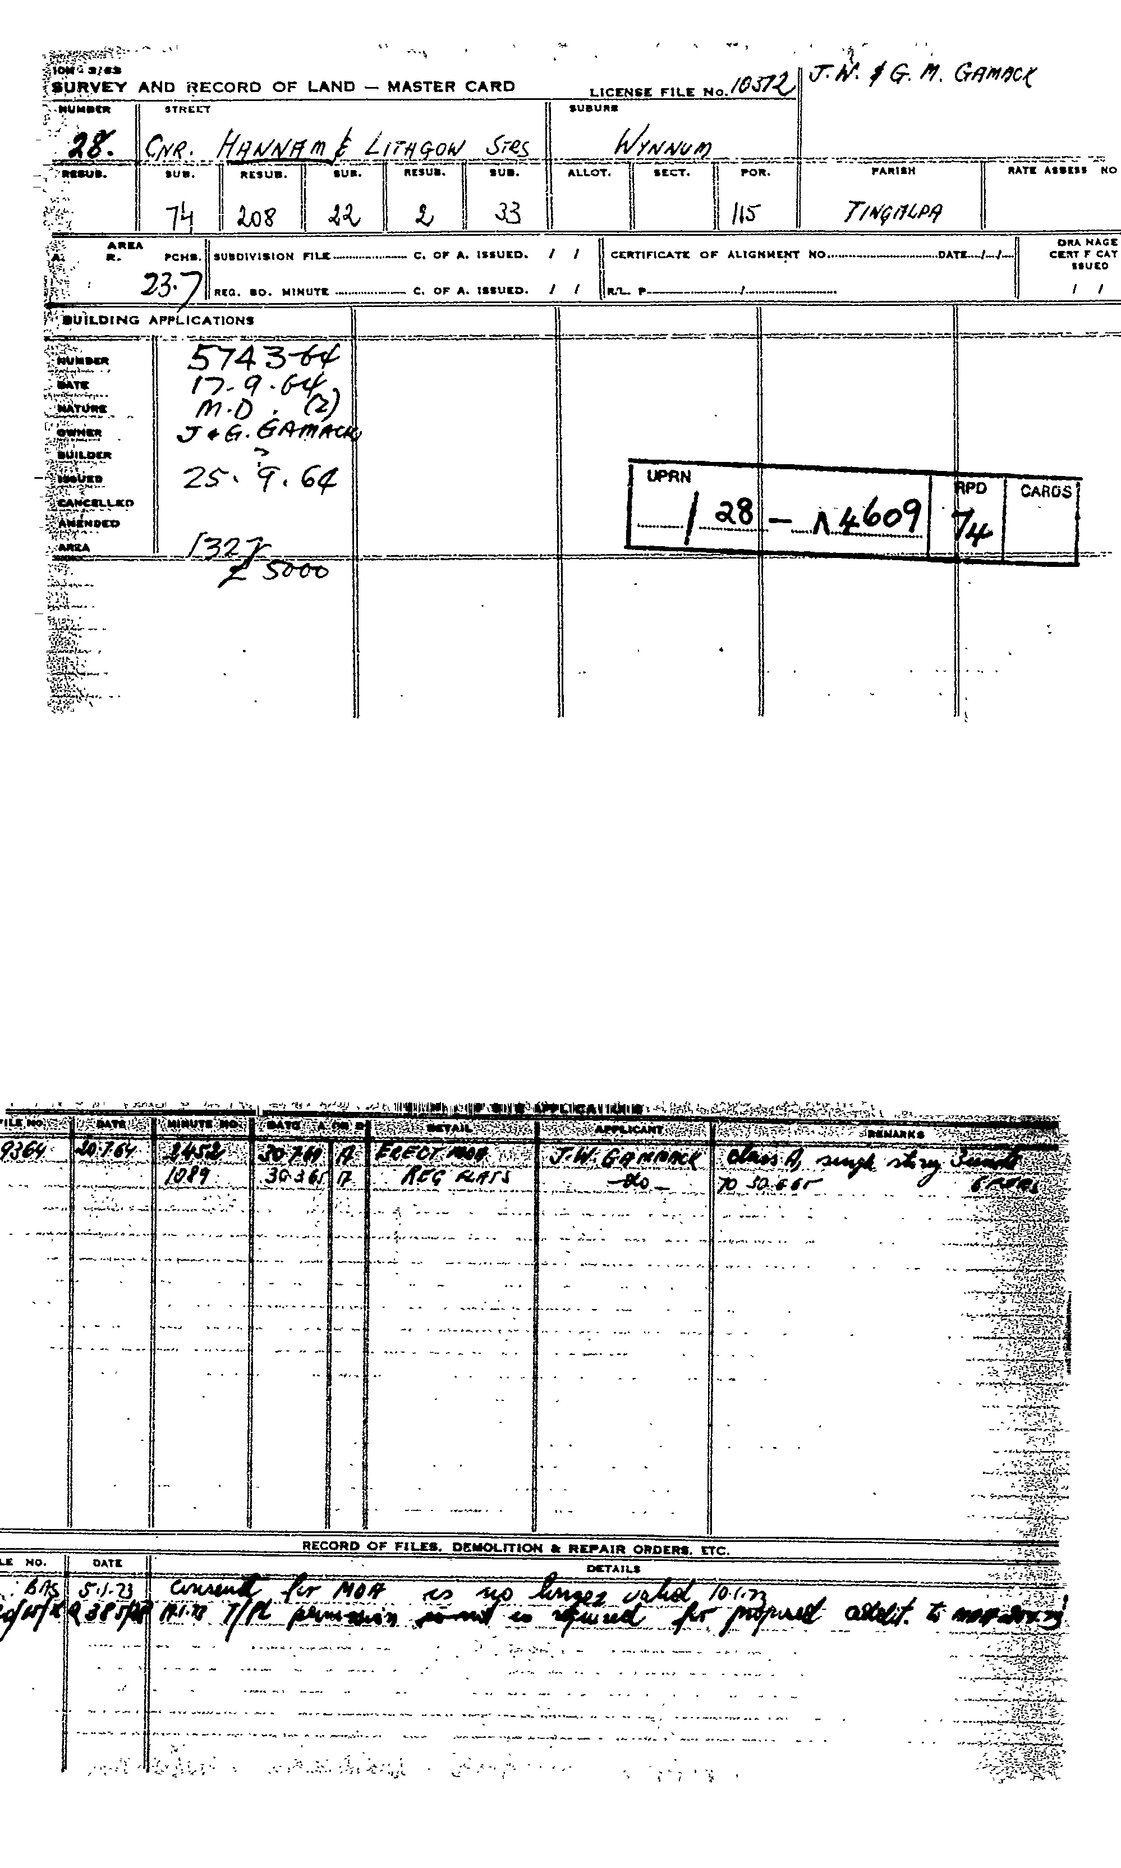 SURVEY AND RECORD OF LAND — MASTER CARD
LICENSE FILE No. 10572
J. W. & G. M. GAMACK
NUMBER STREET SUBURB
28. CNR. HANNAM & LITHGOW STRS WYNNUM
RESUB. SUB. RESUB. SUB. RESUB. SUB. ALLOT. SECT. POR. PARISH RATE ASSESS NO
74 208 22 2 33 115 TINGALPA
AREA
A. R. PCHS. SUBDIVISION FILE C. OF A. ISSUED. / / CERTIFICATE OF ALIGNMENT NO. DATE / /
DRA NAGE
CERT F CAT
ISSUED
23.7 REG. BD. MINUTE C. OF A. ISSUED. / / R/L. P. / / /
BUILDING APPLICATIONS
NUMBER 5743-64
DATE 17.9.64
NATURE M.D. (2)
OWNER J & G. GAMACK
BUILDER ?
ISSUED 25.9.64
CANCELLED
AMENDED
AREA 1327
£ 5000
UPRN RPD CARDS
/ 28 — 14609 74
FILE NO. DATE MINUTE NO. DATE A OR R DETAIL APPLICANT REMARKS
9364 20.7.64 2452 30.7.64 A ERECT MDA J.W. GAMMACK class A, single story 3 units
1089 30.3.65 A REG FLATS —do— TO 30.6.65 6 FLATS
RECORD OF FILES, DEMOLITION & REPAIR ORDERS, ETC.
LE NO. DATE DETAILS
BAS 5.1.73 consent for MDA is no longer valid 10.1.73
T/Pl permission is not required for proposed addit. to